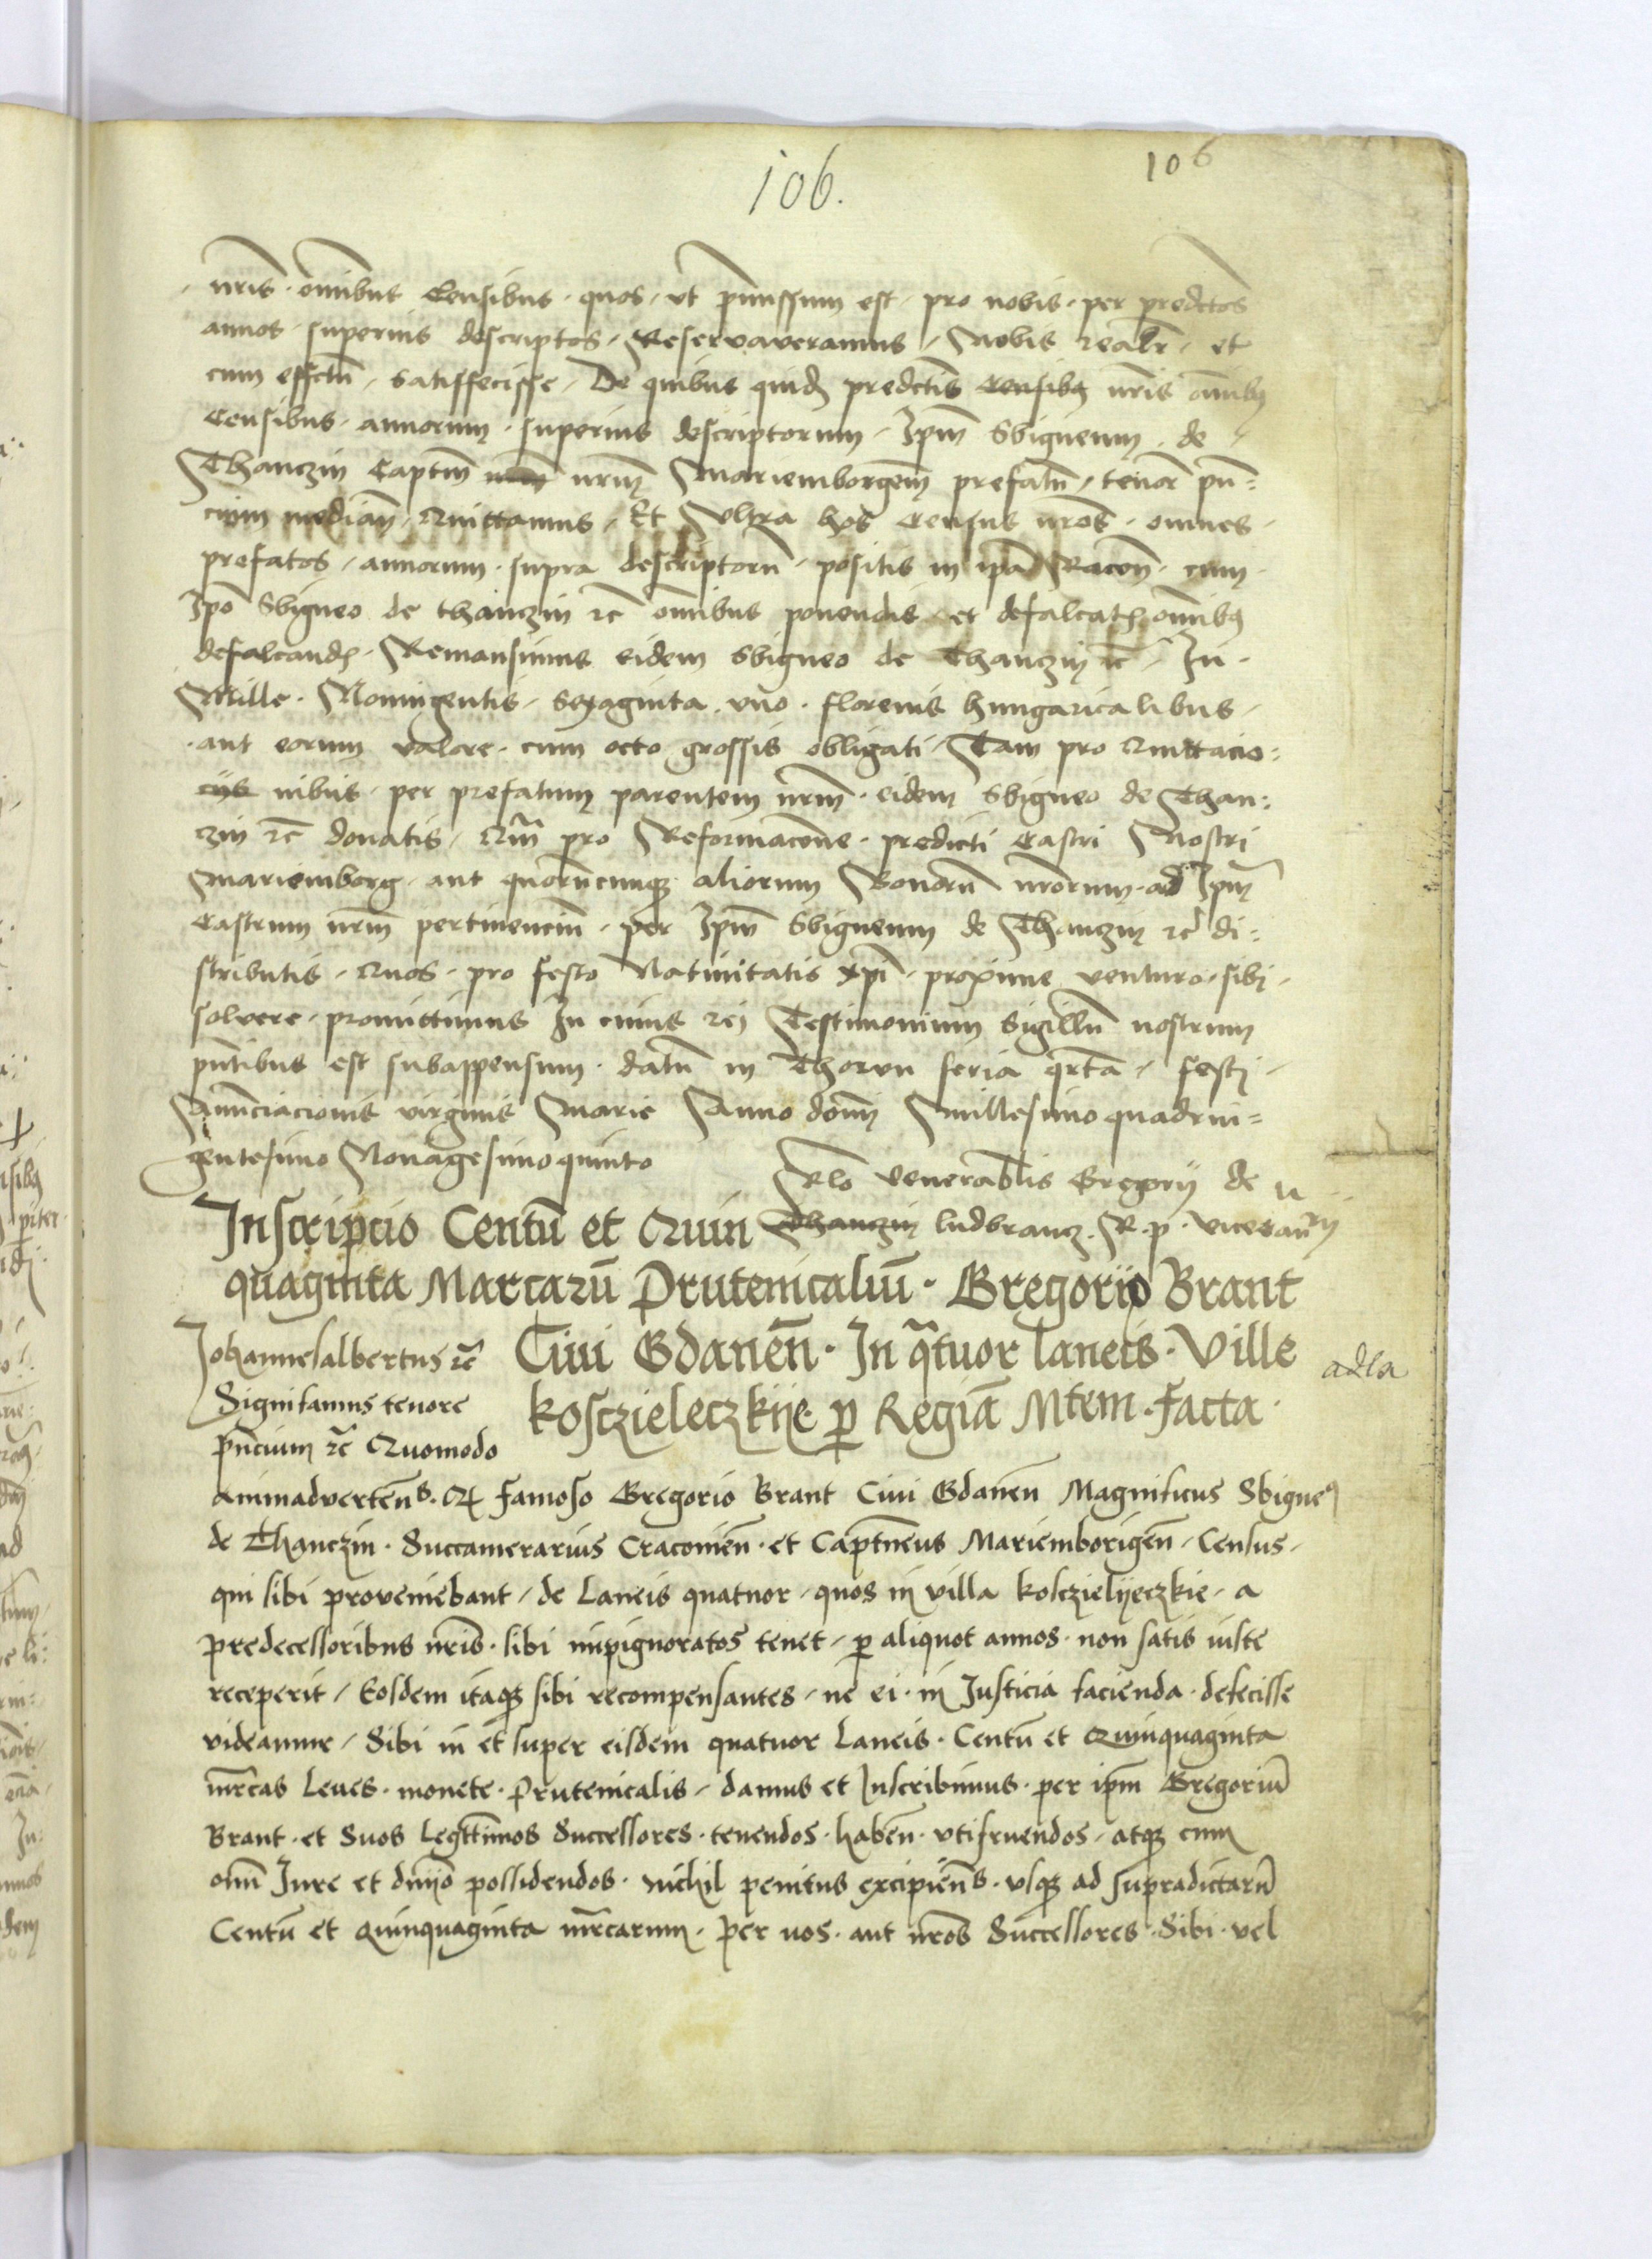 106.
106
nris omnibus Censibus quos ut premissum est pro nobis per predctos
annos superius descriptos Reservaveramus Nobis realr et
cum effctu satisfecisse De quibus quid predctis Censibq nris omnibq
Censibus annorum superius descriptorum Ipm Sbigneum de
Thanczin Captm nrm Mariemborgem prefatu tenor pn=
cium median Quittamus Et Ultra hos Census nros omnes
prefatos annorum supra descriptoru positis in ipa Racon cum
Ipo Sbigneo de thanczin etc omnibus ponendis et defalcat omnibq
defalcand Remansimus eidem Sbigneo de Thanczin etc In
Mille Noningentis Sexaginta uno florenis hungaricalibus
aut eorum valore cum octo grossis obligati Tam pro Quittacio=
nibus per prefatum parentem nrm eidem Sbigneo de Than=
czin etc donatis Qm pro Reformacone predicti Castri Nostri
Mariemborg aut quorucunque aliorum Bonoru nrorum ad Ipm
Castrum nrm pertinenciu per Ipm Sbigneum de Thanczin etc di=
stributis Quos pro festo Nativitatis xpi proxime venturo sibi
solvere promittimus In cuius rei Testimonium Sigillu nostrum
pntibus est subappensum datu in Thorun feria qrta festi
Annunciacionis virginis Marie Anno domi Millesimo quadrin=
gentesimo Nonagesimo quinto
Rlo venerablis Gregorij de
Thanczin ludbrancz R. p. vicecan
Inscripcio Centu et Quin
quaginta Marcaru Prutenicaliu. Gregorijo Brant
Civi Gdanen. In qtuor laneis. Ville
kosczieleczkije p Regia Mtem. facta
adla
Johannesalbertus etc
Significamus tenore
pncium etc Quomodo
animadvertens. Q famoso Gregorio Brant Civi Gdanen Magnificus Sbigne9
de Thanczin. Succamerarius Cracovien. et Captneus Mariemborigen Census
qui sibi proveniebant de Laneis quatuor quos in villa kosczielyeczkie a
predecessoribus nris. sibi inpignoratos tenet p aliquot annos. non satis iuste
receperit Eosdem itaque sibi recompensantes ne ei in Justicia facienda defecisse
videamur Sibi in et super eisdem quatuor Laneis. Centu et Quinquaginta
mrcas Leves. monete. Prutenicalis damus et Inscribimus. per ipm Gregoriu
Brant. et Suos Legttimos Successores. tenendos. haben. utifruendos atque cum
omi Jure et dnijo possidendos. Nichil penitus excipiens. usque ad supradictaru
Centu et Quinquaginta mrcarum. per nos. aut nros Successores. Sibi. vel